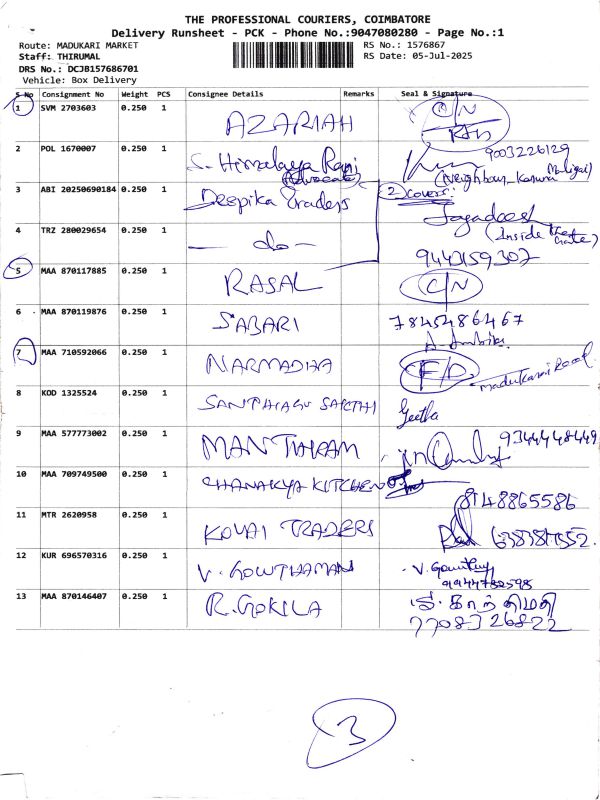 THE PROFESSIONAL COURIERS, COIMBATORE
Delivery Runsheet - PCK - Phone No.:9047080280 - Page No.:1
Route: MADUKARI MARKET
RS No.: 1576867
Staff: THIRUMAL
RS Date: 05-Jul-2025
DRS No.: DCJB157686701
Vehicle: Box Delivery
S No Consignment No Weight PCS Consignee Details Remarks Seal & Signature
1 SVM 2703603 0.250 1 AZARIAH C/N
2 POL 1670007 0.250 1 S. Himalaya Rani 9003226129
(Advocate) (Neighbour - Kanuru Maligai)
3 ABI 20250690184 0.250 1 Deepika Traders 2 covers
Jagadeesh
4 TRZ 280029654 0.250 1 — do — (Inside the Gate)
9443159307
5 MAA 870117885 0.250 1 RASAL C/N
6 MAA 870119876 0.250 1 SABARI 7845486467
A. Ambika
7 MAA 710592066 0.250 1 NARMADHA F/D Madukarai Road
8 KOD 1325524 0.250 1 SANTHIAGU SAKTHI Geetha
9 MAA 577773002 0.250 1 MANTHIRAM 9344448449
10 MAA 709749500 0.250 1 CHANAKYA KITCHEN
8148865586
11 MTR 2620958 0.250 1 KOVAI TRADERS
12 KUR 696570316 0.250 1 V. GOWTHAMAN V. Gowtham
9944732598
13 MAA 870146407 0.250 1 R. GOKILA காந்திமதி
7708326822
3